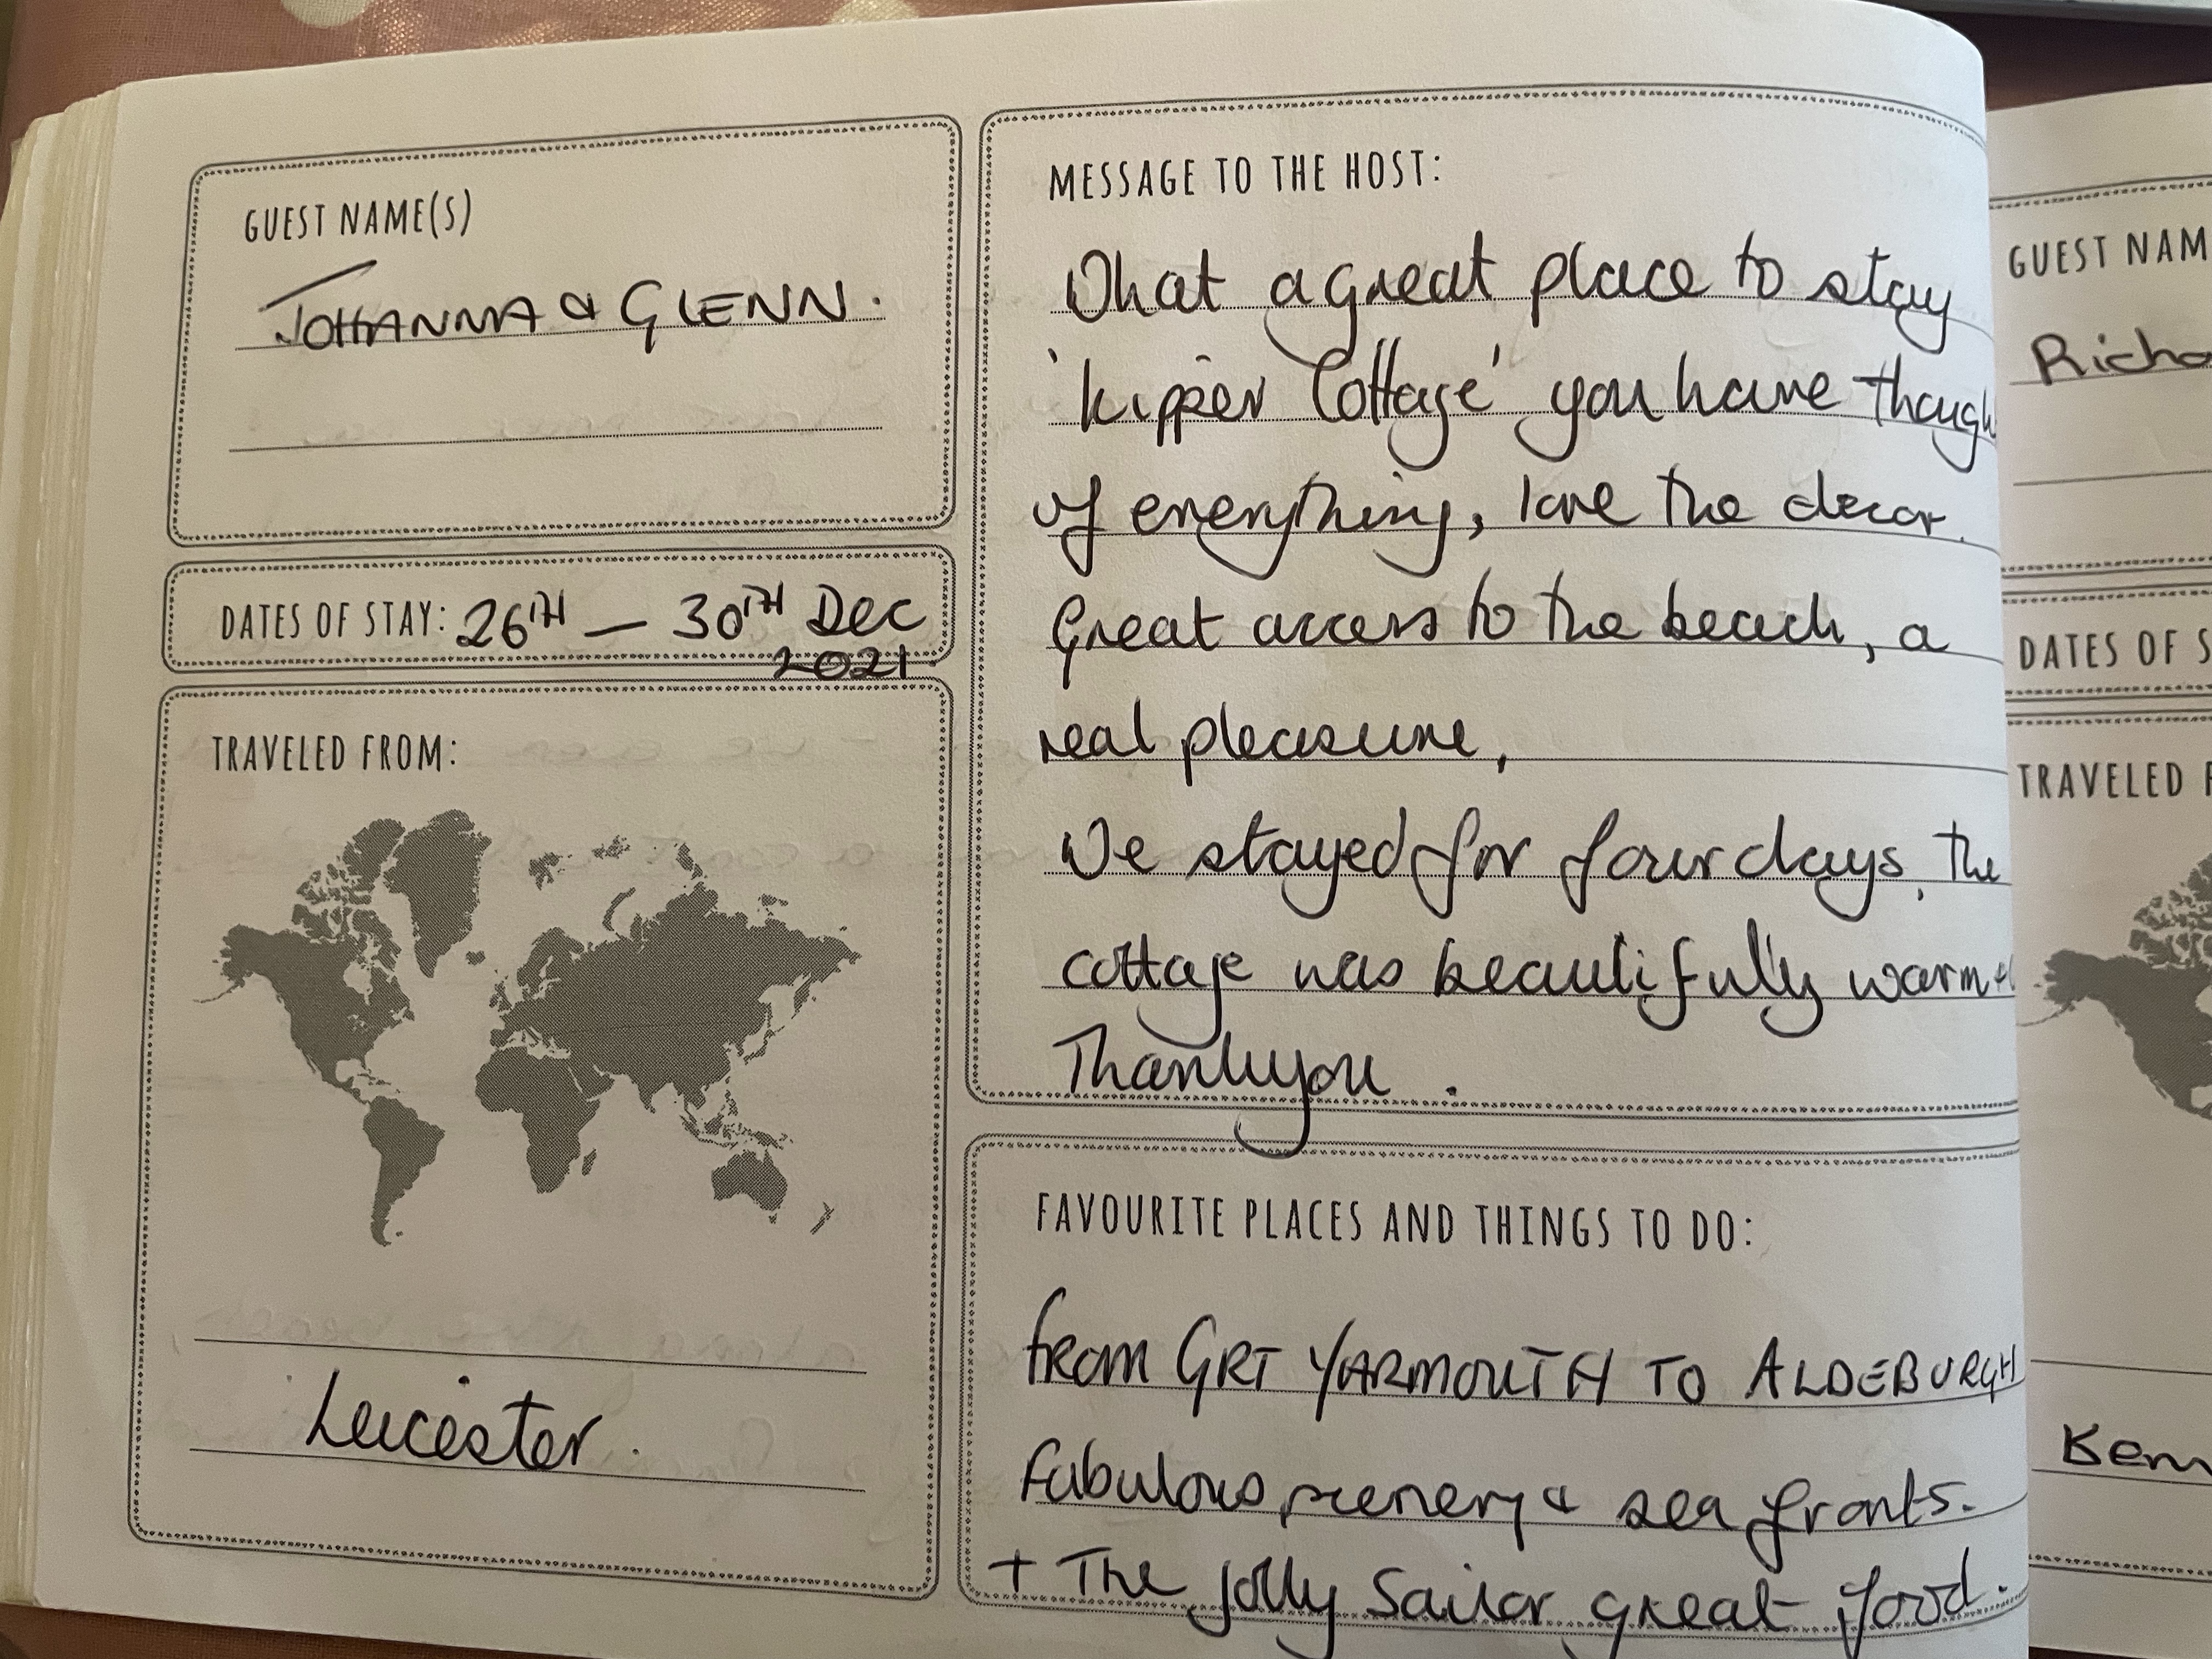 GUEST NAME(S)
JOHANNA & GLENN.
DATES OF STAY: 26TH — 30TH Dec
2021.
TRAVELED FROM:
Leicester.
MESSAGE TO THE HOST:
What a great place to stay
'kipper Cottage' you have though
of everything, love the decor.
Great access to the beach, a
real pleasure,
We stayed for four days, the
cottage was beautifully warm +
Thankyou.
FAVOURITE PLACES AND THINGS TO DO:
from GRT YARMOUTH TO ALDEBURGH
fabulous scenery & sea fronts.
+ The Jolly Sailor great food.
GUEST NAM
Richa
DATES OF S
TRAVELED F